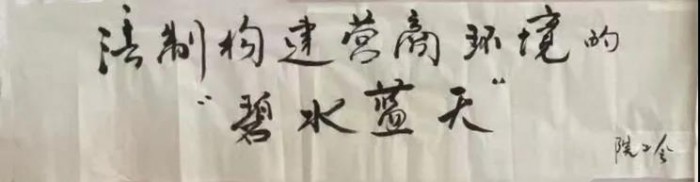 法制构建营商环境的
“碧水蓝天”